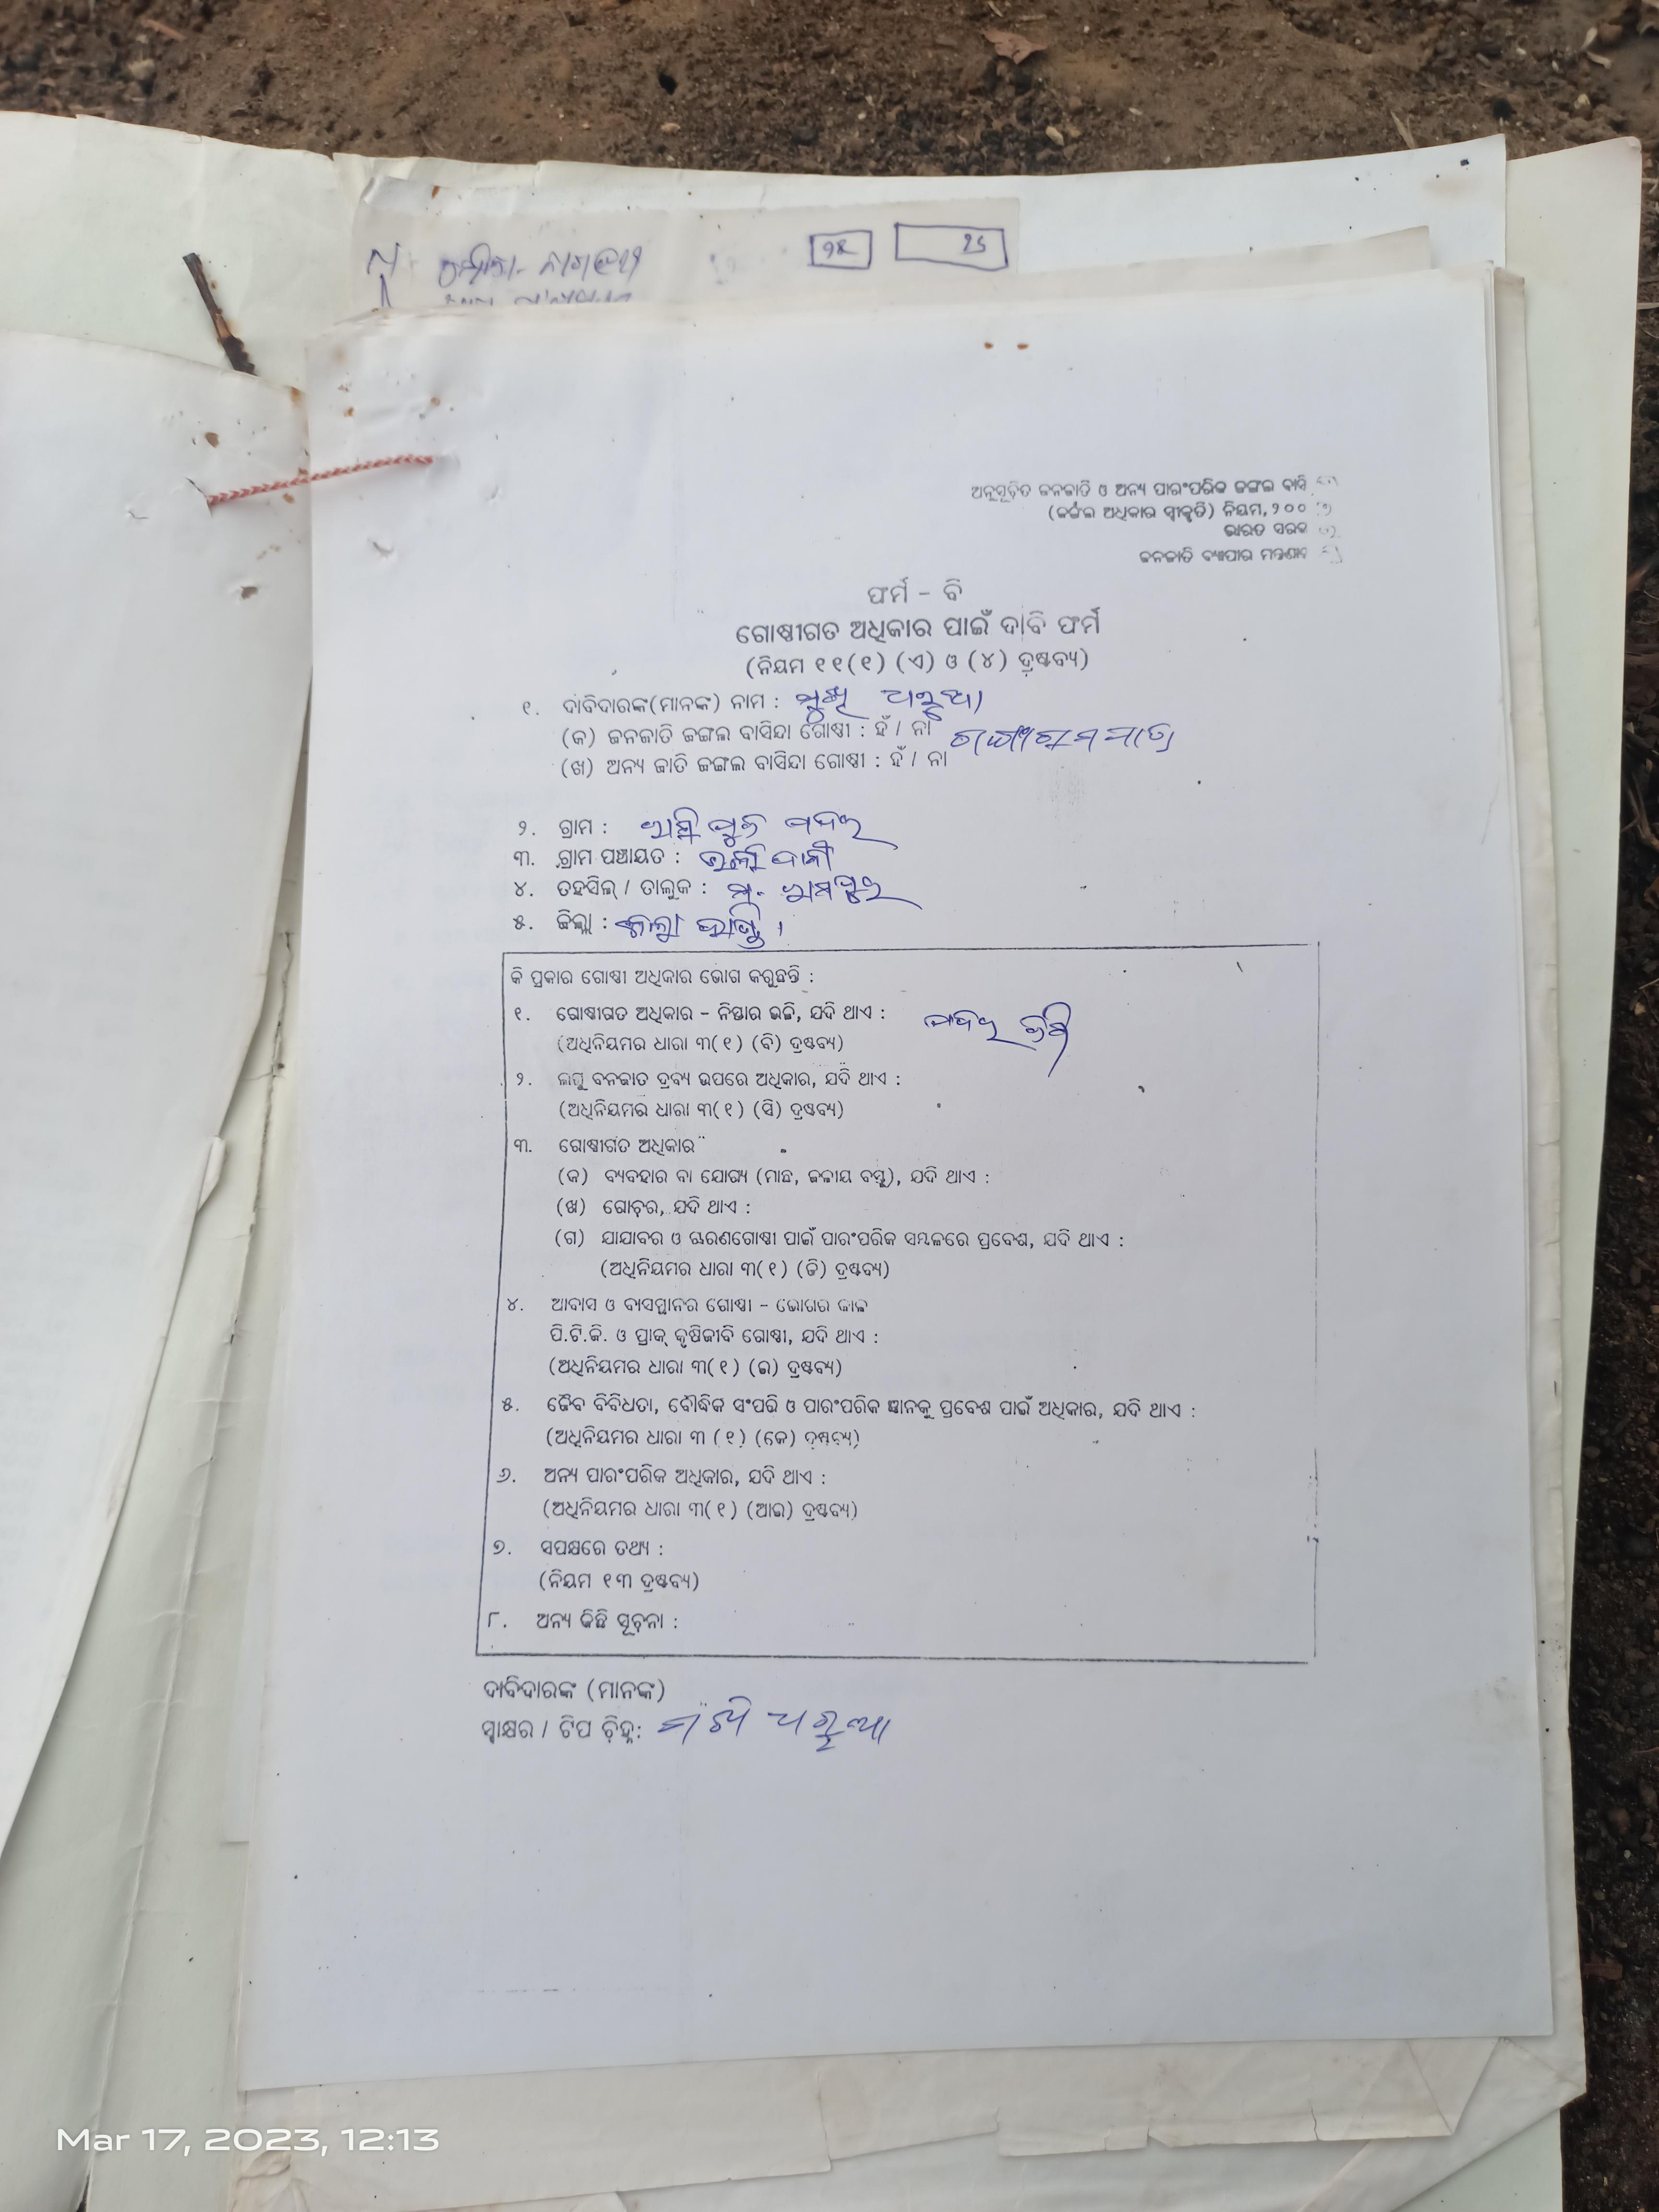 ଅନୁସୂଚିତ ଜନଜାତି ଓ ଅନ୍ୟ ପାରଂପରିକ ଜଙ୍ଗଲ ବାସି
(ଜଙ୍ଗଲ ଅଧିକାର ସ୍ୱୀକୃତି) ନିୟମ, ୨୦୦
ଭାରତ ସରକ
ଜନଜାତି ବ୍ୟାପାର ମନ୍ତ୍ରଣାଳ
ଫର୍ମ - ବି
ଗୋଷ୍ଠୀଗତ ଅଧିକାର ପାଇଁ ଦାବି ଫର୍ମ
(ନିୟମ ୧୧(୧) (ଏ) ଓ (୪) ଦ୍ରଷ୍ଟବ୍ୟ)
୧. ଦାବିଦାରଙ୍କ(ମାନଙ୍କ) ନାମ :
(କ) ଜନଜାତି ଜଙ୍ଗଲ ବାସିନ୍ଦା ଗୋଷ୍ଠୀ : ହଁ / ନା
(ଖ) ଅନ୍ୟ ଜାତି ଜଙ୍ଗଲ ବାସିନ୍ଦା ଗୋଷ୍ଠୀ : ହଁ / ନା
୨. ଗ୍ରାମ :
୩. ଗ୍ରାମ ପଞ୍ଚାୟତ :
୪. ତହସିଲ୍ / ତାଲୁକ : ମ. ରାମପୁର
୫. ଜିଲ୍ଲା : କଳାହାଣ୍ଡି ।
କି ପ୍ରକାର ଗୋଷ୍ଠୀ ଅଧିକାର ଭୋଗ କରୁଛନ୍ତି :
୧. ଗୋଷ୍ଠୀଗତ ଅଧିକାର - ନିସ୍ତାର ଭଳି, ଯଦି ଥାଏ :
(ଅଧିନିୟମର ଧାରା ୩(୧) (ବି) ଦ୍ରଷ୍ଟବ୍ୟ)
୨. ଲଘୁ ବନଜାତ ଦ୍ରବ୍ୟ ଉପରେ ଅଧିକାର, ଯଦି ଥାଏ :
(ଅଧିନିୟମର ଧାରା ୩(୧) (ସି) ଦ୍ରଷ୍ଟବ୍ୟ)
୩. ଗୋଷ୍ଠୀଗତ ଅଧିକାର
(କ) ବ୍ୟବହାର ବା ଯୋଗ୍ୟ (ମାଛ, ଜଳୀୟ ବସ୍ତୁ), ଯଦି ଥାଏ :
(ଖ) ଗୋଚର, ଯଦି ଥାଏ :
(ଗ) ଯାଯାବର ଓ ଚାରଣଗୋଷ୍ଠୀ ପାଇଁ ପାରଂପରିକ ସମ୍ଭଳରେ ପ୍ରବେଶ, ଯଦି ଥାଏ :
(ଅଧିନିୟମର ଧାରା ୩(୧) (ଡି) ଦ୍ରଷ୍ଟବ୍ୟ)
୪. ଆବାସ ଓ ବାସସ୍ଥାନର ଗୋଷ୍ଠୀ - ଭୋଗର କାଳ
ପି.ଟି.ଜି. ଓ ପ୍ରାକ୍ କୃଷିଜୀବି ଗୋଷ୍ଠୀ, ଯଦି ଥାଏ :
(ଅଧିନିୟମର ଧାରା ୩(୧) (ଇ) ଦ୍ରଷ୍ଟବ୍ୟ)
୫. ଜୈବ ବିବିଧତା, ବୌଦ୍ଧିକ ସଂପତ୍ତି ଓ ପାରଂପରିକ ଜ୍ଞାନକୁ ପ୍ରବେଶ ପାଇଁ ଅଧିକାର, ଯଦି ଥାଏ :
(ଅଧିନିୟମର ଧାରା ୩ (୧) (କେ) ଦ୍ରଷ୍ଟବ୍ୟ)
୬. ଅନ୍ୟ ପାରଂପରିକ ଅଧିକାର, ଯଦି ଥାଏ :
(ଅଧିନିୟମର ଧାରା ୩(୧) (ଆଇ) ଦ୍ରଷ୍ଟବ୍ୟ)
୭. ସପକ୍ଷରେ ତଥ୍ୟ :
(ନିୟମ ୧୩ ଦ୍ରଷ୍ଟବ୍ୟ)
୮. ଅନ୍ୟ କିଛି ସୂଚନା :
ଦାବିଦାରଙ୍କ (ମାନଙ୍କ)
ସ୍ୱାକ୍ଷର / ଟିପ ଚିହ୍ନ :
Mar 17, 2023, 12:13